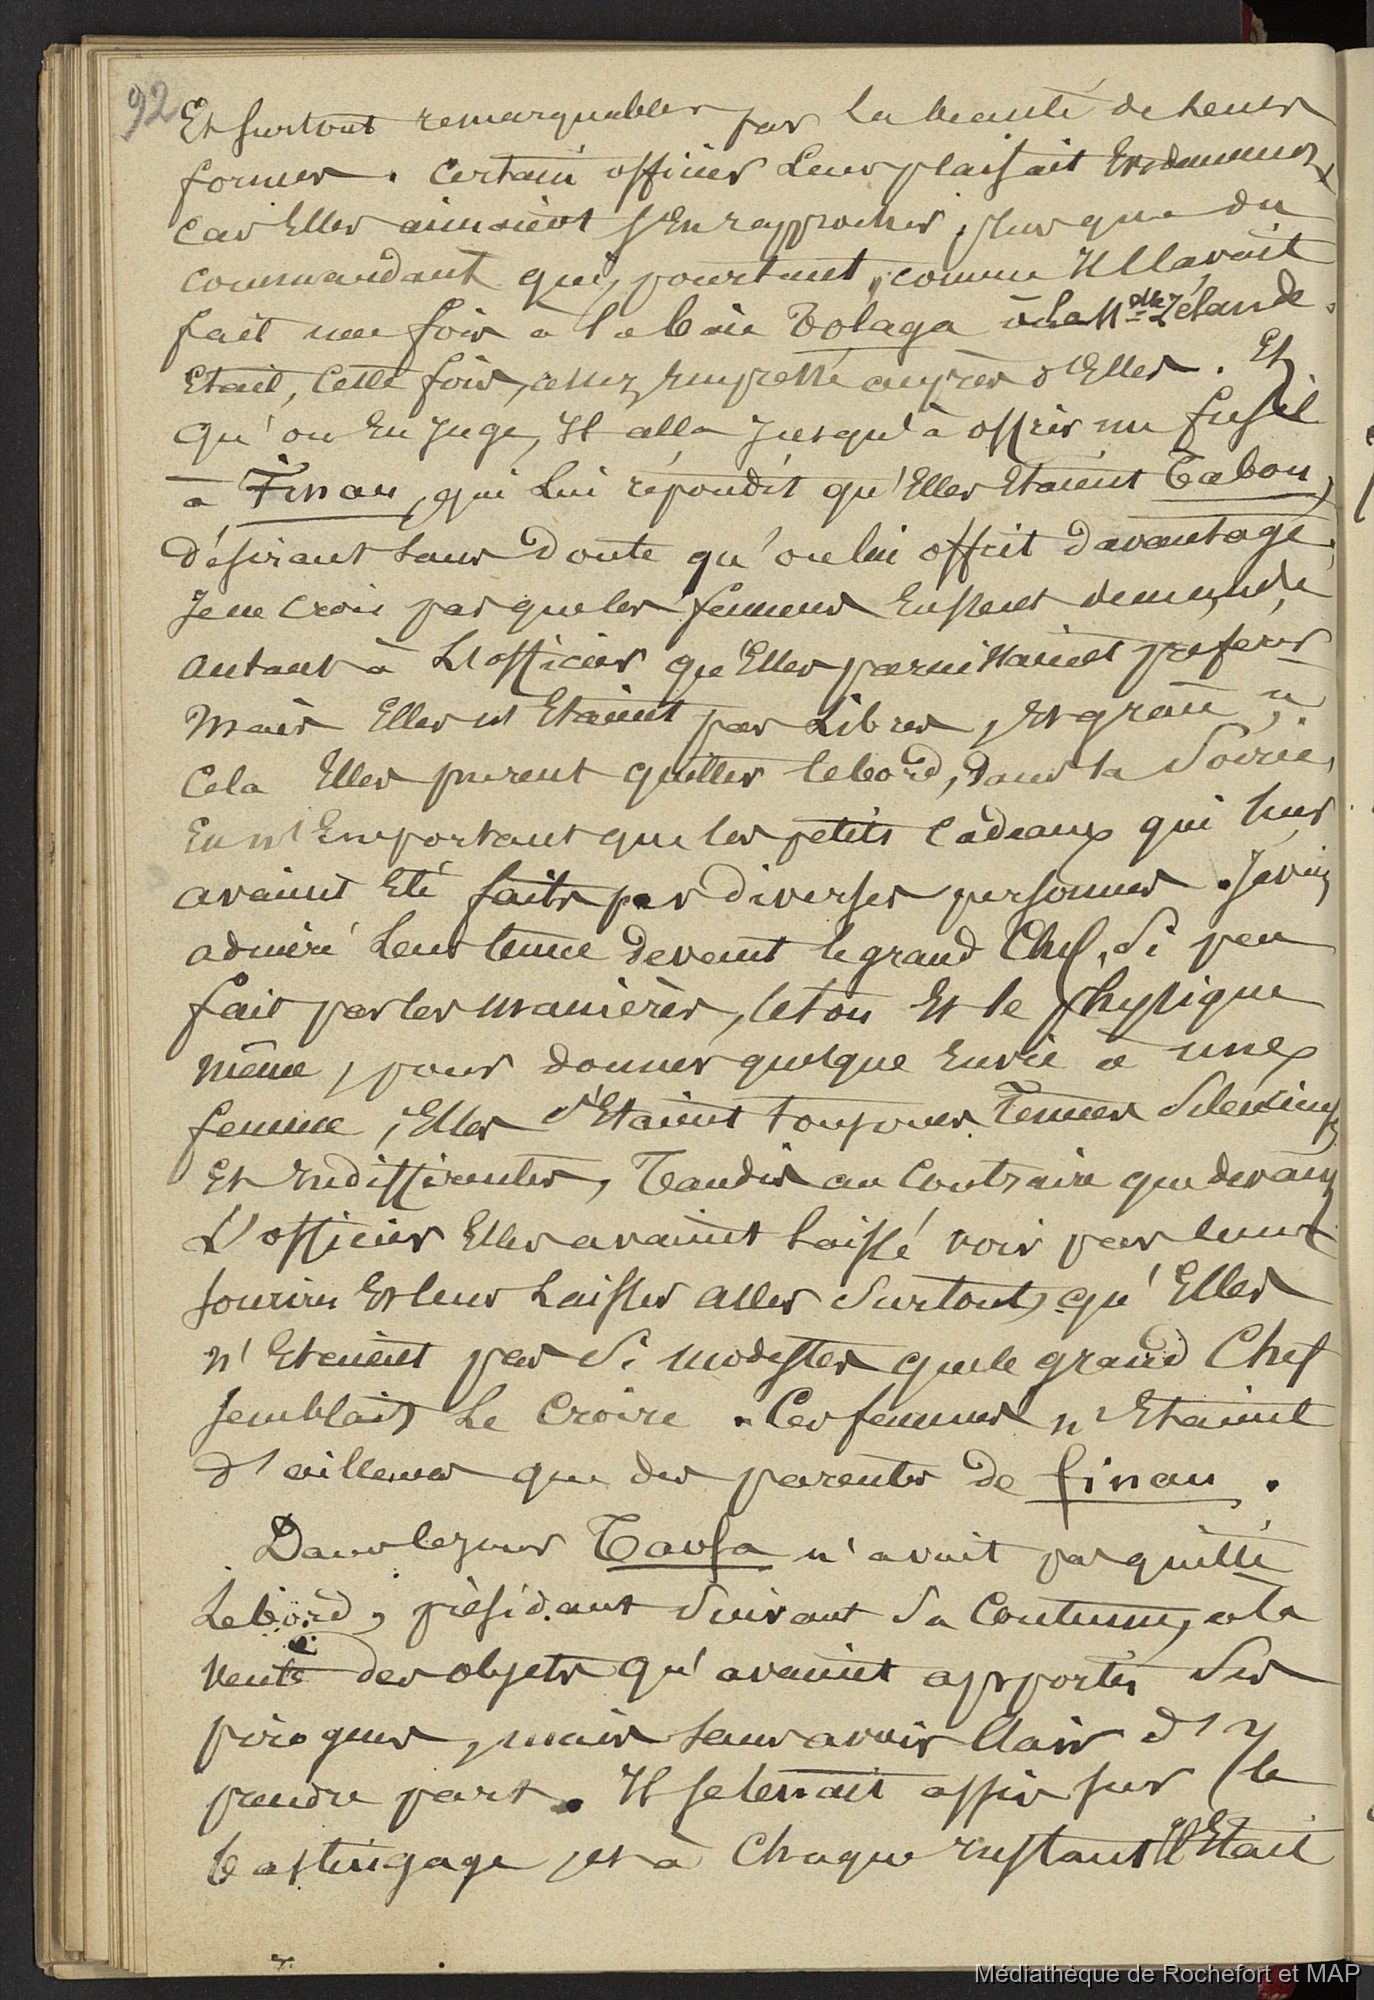 92
Et surtout remarquables par la beauté de leurs
formes. Certain officier leur plaisait
car Elles aimaient s'En rapprocher, plus que du
commandant qui, pourtant, comme Il l'avait
fait une fois à la baie Tolaga à la Nlle Zélande.
Etait, cette fois, assez Empressé auprès d'Elles. Et
qu'on En Juge, Il alla Jusqu'à offrir un fusil
à Finau, qui Lui répondit qu'Elles Etaient Tabou,
désirant sans doute qu'on lui offrit davantage.
Je ne crois pas que les femmes Eussent demandé
autant à L'officier qu'Elles paraissaient préférer
Mais Elles n'Etaient pas Libres, Et grâce à
Cela Elles purent quitter le bord, dans la Soirée,
En n'Emportant que les petits Cadeaux qui leur
avaient Eté faits par diverses personnes. J'avais
admiré Leur tenue devant le grand Chef, Si peu
fait par les manières, le ton Et le physique
même, pour donner quelque Envie à une
femme, Elles s'Etaient toujours Tenues Silencieuses
Et Indifférentes, Tandis au Contraire que devant
L'officier Elles avaient laissé voir par leurs
sourires Et leur Laisser aller Surtout, qu'Elles
n'Etaient pas Si modestes que le grand Chef
semblait Le Croire. Ces femmes n'Etaient
d'ailleurs que des parentes de finau.
Dans le jour Taofa n'avait pas quitté
Le bord, présidant Suivant Sa Coutume, à la
vente des objets qu'avaient apportés Ses
pirogues, mais sans avoir l'air d'y
prendre part. Il se tenait assis sur le
bastingage, et à Chaque Instant Il Etait
Médiathèque de Rochefort et MAP